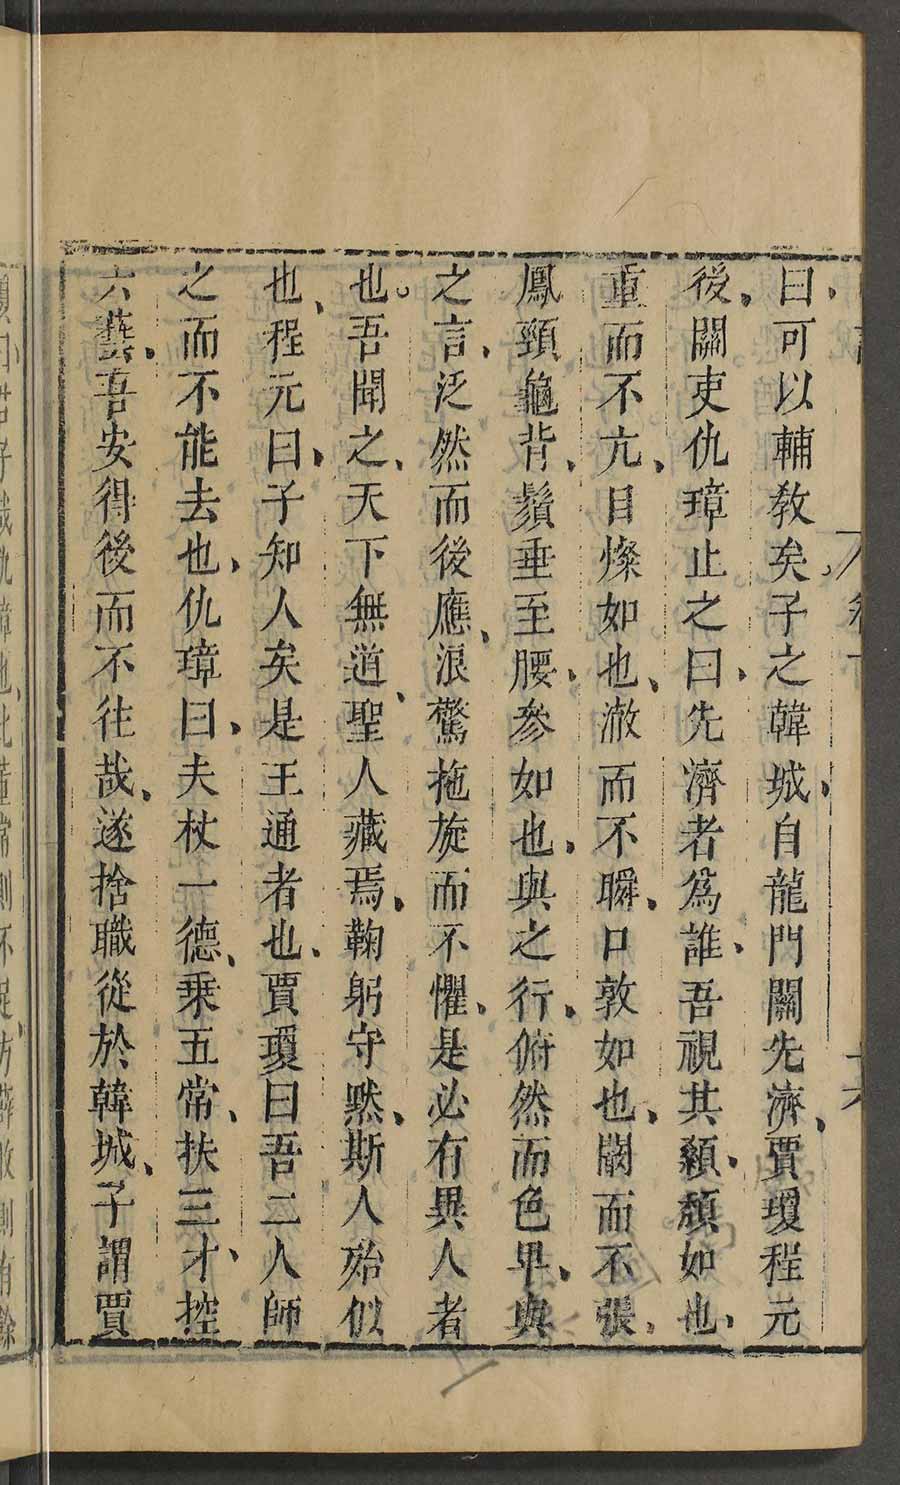 曰可以輔教矣子之韓城自龍門關先濟賈瓊程元
後關吏仇璋止之曰先濟者爲誰吾視其顙頹如也
重而不亢目燦如也澈而不瞬口敦如也闊而不張
鳳頸龜背鬚垂至腰參如也與之行俯然而色卑與
之言泛然而後應浪驚拖旋而不懼是必有異人者
也吾聞之天下無道聖人藏焉鞠躬守默斯人殆似
也程元曰子知人矣是王通者也賈瓊曰吾二人師
之而不能去也仇璋曰夫杖一德乗五常扶三才控
六藝吾安得後而不往哉遂捨職從於韓城子謂賈